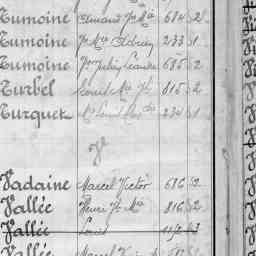 Tumoine Edmond Jn Mie 684 2
Tumoine Jn Mie 233 1
Tumoine Jn Julien 685 2
Turbel Louis Mie 815 2
Turquet Louis 234 1
V
Vadaine Marcel Victor 686 2
Vallée Henri Jn Mie 816 2
Vallée Louis
Vallée Marcel